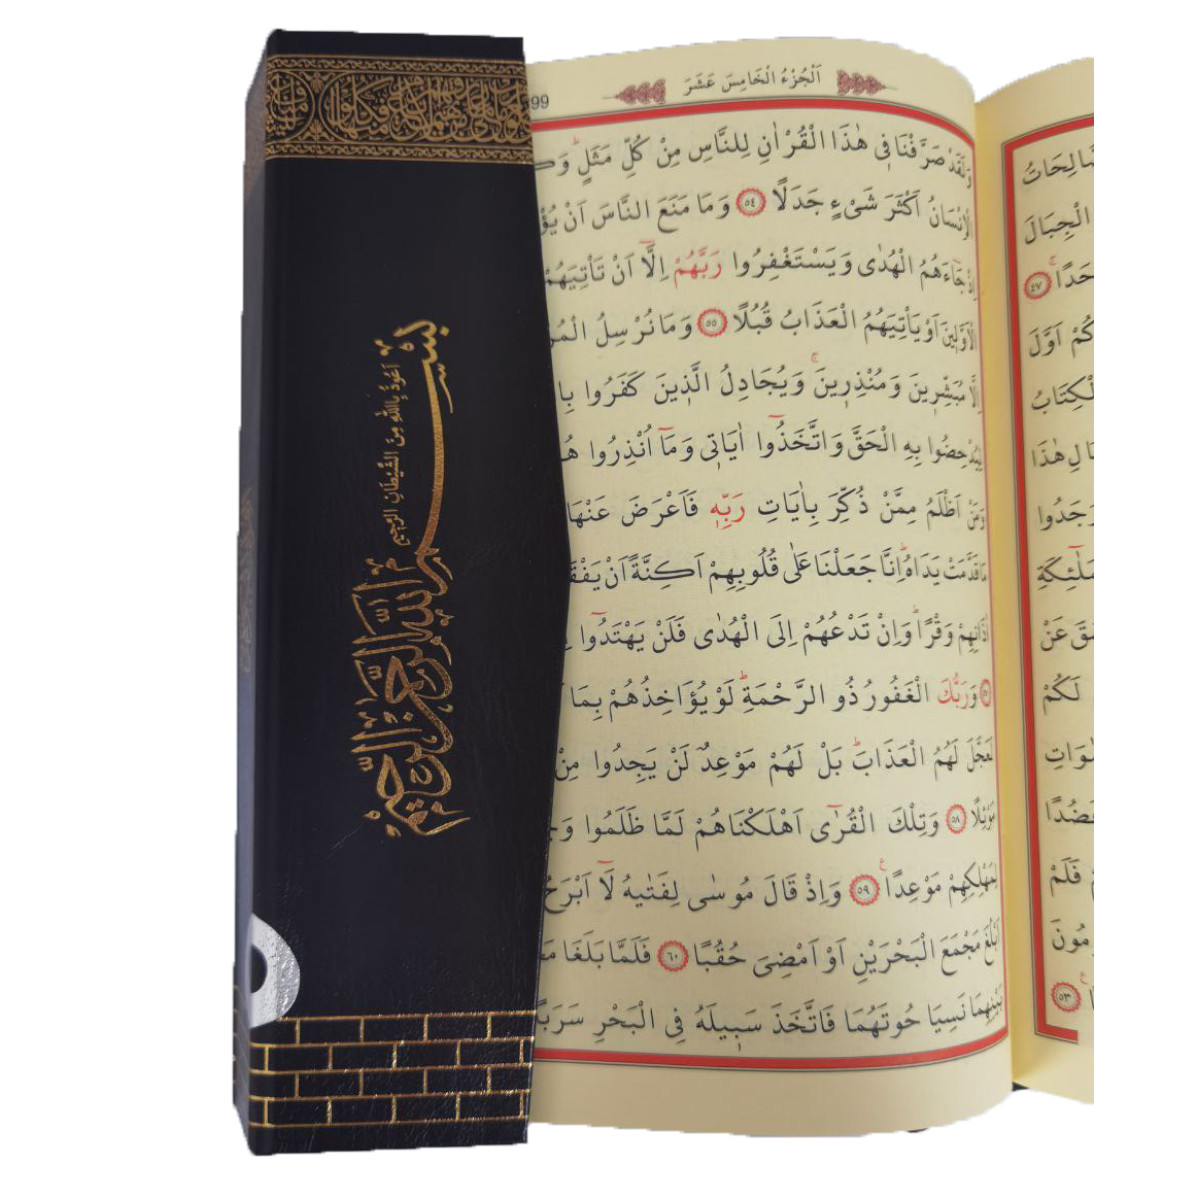 اَلْجُزْءُ الْخَامِسَ عَشَرَ
99
وَلَقَدْ صَرَّفْنَا ف۪ي هٰذَا الْقُرْاٰنِ لِلنَّاسِ مِنْ كُلِّ مَثَلٍۜ
الْاِنْسَانُ اَكْثَرَ شَيْءٍ جَدَلًا ٥٤ وَمَا مَنَعَ النَّاسَ اَنْ
اِذْ جَٓاءَهُمُ الْهُدٰى وَيَسْتَغْفِرُوا رَبَّهُمْ اِلَّٓا اَنْ تَأْتِيَهُمْ
الْاَوَّل۪ينَ اَوْ يَأْتِيَهُمُ الْعَذَابُ قُبُلًا ٥٥ وَمَا نُرْسِلُ
اِلَّا مُبَشِّر۪ينَ وَمُنْذِر۪ينَۚ وَيُجَادِلُ الَّذ۪ينَ كَفَرُوا
بِهِ الْحَقَّ وَاتَّخَذُٓوا اٰيَات۪ي وَمَٓا اُنْذِرُوا
وَمَنْ اَظْلَمُ مِمَّنْ ذُكِّرَ بِاٰيَاتِ رَبِّه۪ فَاَعْرَضَ عَنْهَا
مَا قَدَّمَتْ يَدَاهُۜ اِنَّا جَعَلْنَا عَلٰى قُلُوبِهِمْ اَكِنَّةً اَنْ
اٰذَانِهِمْ وَقْرًاۜ وَاِنْ تَدْعُهُمْ اِلَى الْهُدٰى فَلَنْ يَهْتَدُٓوا
وَرَبُّكَ الْغَفُورُ ذُو الرَّحْمَةِۜ لَوْ يُؤَاخِذُهُمْ بِمَا
لَعَجَّلَ لَهُمُ الْعَذَابَۜ بَلْ لَهُمْ مَوْعِدٌ لَنْ يَجِدُوا مِنْ
مَوْئِلًا ٥٨ وَتِلْكَ الْقُرٰٓى اَهْلَكْنَاهُمْ لَمَّا ظَلَمُوا
لِمَهْلِكِهِمْ مَوْعِدًاۚ ٥٩ وَاِذْ قَالَ مُوسٰى لِفَتٰيهُ لَٓا اَبْرَحُ
اَبْلُغَ مَجْمَعَ الْبَحْرَيْنِ اَوْ اَمْضِيَ حُقُبًا ٦٠ فَلَمَّا بَلَغَا
بَيْنِهِمَا نَسِيَا حُوتَهُمَا فَاتَّخَذَ سَب۪يلَهُ فِي الْبَحْرِ سَرَبًا
الْجِبَالَ
٤٧
اَوَّلَ
هٰذَا
عَنْ
لَكُمْ
فَلَمْ
٥٣
اَعُوذُ بِاللّٰهِ مِنَ الشَّيْطَانِ الرَّج۪يمِ
بِسْمِ اللّٰهِ الرَّحْمٰنِ الرَّحِيمِ